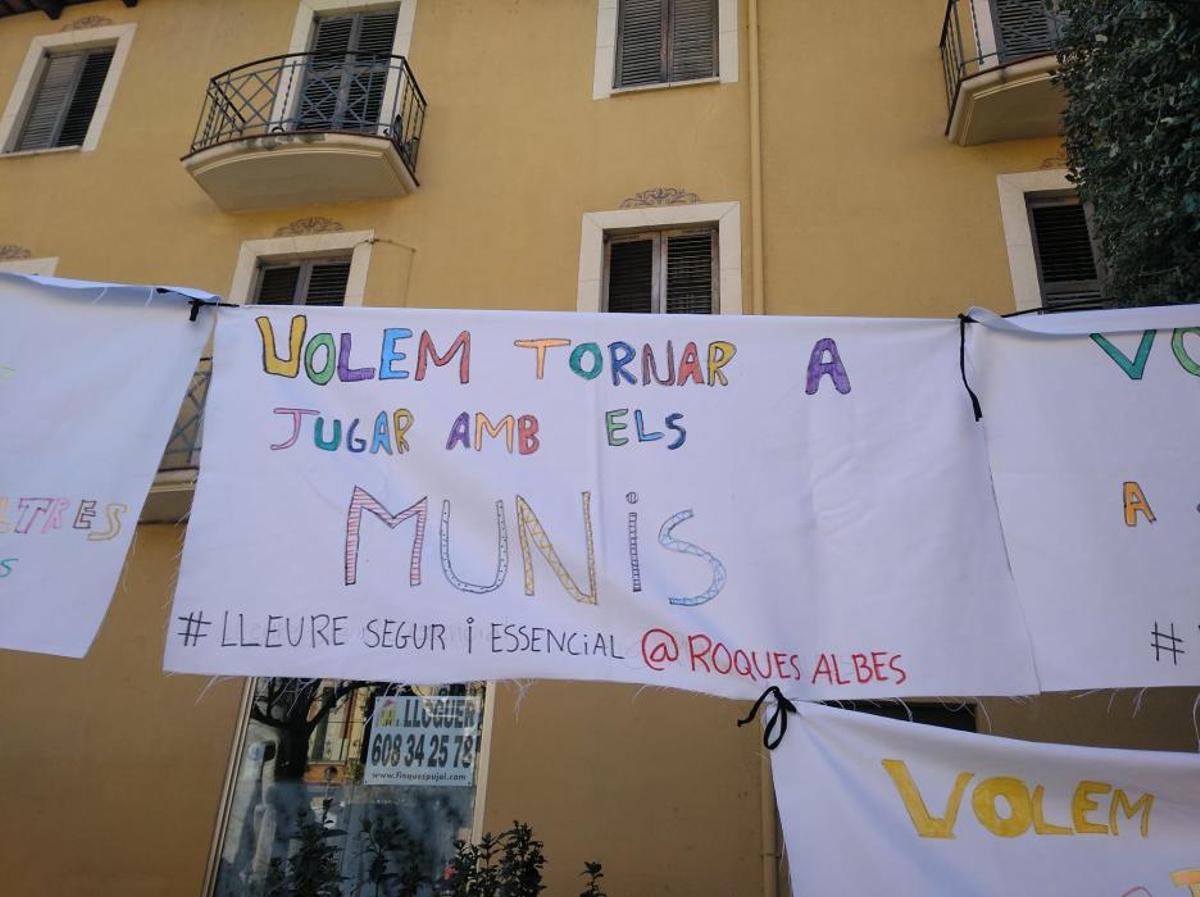 VOLEM TORNAR A
JUGAR AMB ELS
MUNIS
# LLEURE SEGUR I ESSENCIAL @ROQUES ALBES
LTRES
S
VO
A
#
LLOGUER
608 34 25 78
www.finquespujol.com
VOLEM